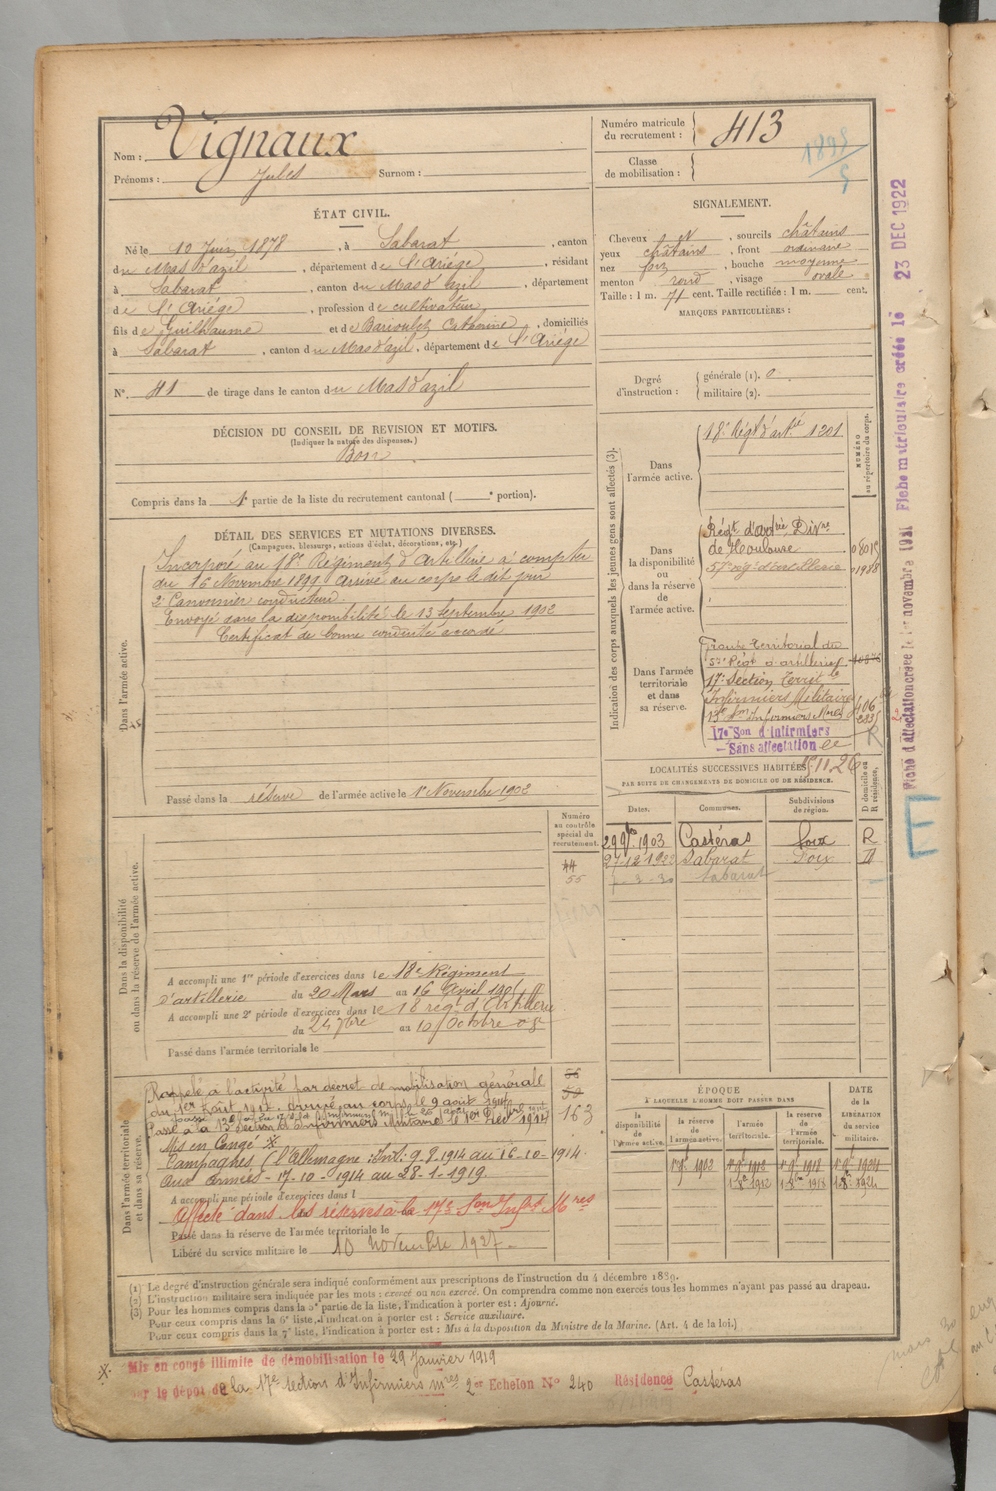 Nom : Vignaux
Prénoms : Jules Surnom :
Numéro matricule du recrutement : 413
Classe de mobilisation :
ÉTAT CIVIL.
Né le 10 Juin 1878, à Sabarat, canton
du Mas d'azil, département de l'Ariége, résidant
à Sabarat, canton du Mas d'azil, département
de l'Ariége, profession de cultivateur
fils de Guilhaume et de Catherine, domiciliés
à Sabarat, canton du Mas d'azil, département de l'Ariége
N° 41 de tirage dans le canton du Mas d'azil
SIGNALEMENT.
Cheveux N, sourcils châtains
yeux châtains, front ordinaire
nez, bouche moyenne
menton rond, visage ovale
Taille : 1 m. 71 cent. Taille rectifiée : 1 m. cent.
MARQUES PARTICULIÈRES :
Degré d'instruction : générale (1). 0
militaire (2).
DÉCISION DU CONSEIL DE REVISION ET MOTIFS.
(Indiquer la nature des dispenses.)
Bon
Compris dans la 1e partie de la liste du recrutement cantonal ( e portion).
DÉTAIL DES SERVICES ET MUTATIONS DIVERSES.
(Campagnes, blessures, actions d'éclat, décorations, etc.)
Dans l'armée active.
Incorporé au 18e Régiment d'Artillerie à compter
du 16 Novembre 1899 arrivé au corps le dit jour
2e Canonnier conducteur.
Envoyé dans la disponibilité le 13 Septembre 1902
Certificat de bonne conduite accordé
Passé dans la réserve de l'armée active le 1er Novembre 1902
Indication des corps auxquels les jeunes gens sont affectés (3).
NUMÉRO au répertoire du corps.
Dans l'armée active.
18e Régt d'artie 1201
Dans la disponibilité ou dans la réserve de l'armée active.
Régt d'artrie Divre
de Toulouse
57e rég d'artillerie
Dans l'armée territoriale et dans sa réserve.
Groupe territorial du
57e Régt d'artillerie
17e Section Territle
Infirmiers Militaires
17e Son d'infirmiers
Sans affectation
LOCALITÉS SUCCESSIVES HABITÉES
PAR SUITE DE CHANGEMENTS DE DOMICILE OU DE RÉSIDENCE.
Dates. Communes. Subdivisions de région. D domicile ou R résidence.
1903 Castéras Foix R
27-12-1922 Sabarat Foix D
Sabarat
Numéro au contrôle spécial du recrutement.
44
55
Dans la disponibilité ou dans la réserve de l'armée active.
A accompli une 1re période d'exercices dans le 18e Régiment
d'artillerie du 20 Mars au 16 Avril
A accompli une 2e période d'exercices dans le 18 rég d'Artillerie
du 24 7bre au 10 Octobre 08
Passé dans l'armée territoriale le
Dans l'armée territoriale et dans sa réserve.
Rappelé à l'activité par décret de mobilisation générale
du 1er Août 1914. arrivé au corps le 9 août 1914
Mis en Congé X
Campagnes C. l'Allemagne : Int: 9.8.1914 au 16-10-1914.
Aux armées - 17-10-1914 au 28-1-1919
163
A accompli une période d'exercices dans l
Affecté dans les réserves à la 17e Son Infrs Mres
Passé dans la réserve de l'armée territoriale le
Libéré du service militaire le 10 novembre 1927
ÉPOQUE
A LAQUELLE L'HOMME DOIT PASSER DANS
la disponibilité de l'armée active. la réserve de l'armée active. l'armée territoriale. la réserve de l'armée territoriale.
DATE DE LA LIBÉRATION DU SERVICE militaire.
(1) Le degré d'instruction générale sera indiqué conformément aux prescriptions de l'instruction du 4 décembre 1889.
(2) L'instruction militaire sera indiquée par les mots : exercé ou non exercé. On comprendra comme non exercés tous les hommes n'ayant pas passé au drapeau.
(3) Pour les hommes compris dans la 5e partie de la liste, l'indication à porter est : Ajourné.
Pour ceux compris dans la 6e liste, l'indication à porter est : Service auxiliaire.
Pour ceux compris dans la 7e liste, l'indication à porter est : Mis à la disposition du Ministre de la Marine. (Art. 4 de la loi.)
X. Mis en congé illimité de démobilisation le 29 Janvier 1919
par le dépôt de la 17e section d'Infirmiers mres 2er Echelon N° 240 Résidence Castéras
Fiche d'affectation créée le 1er novembre 1921 Fiche matriculaire créée le 23 DEC 1922
E